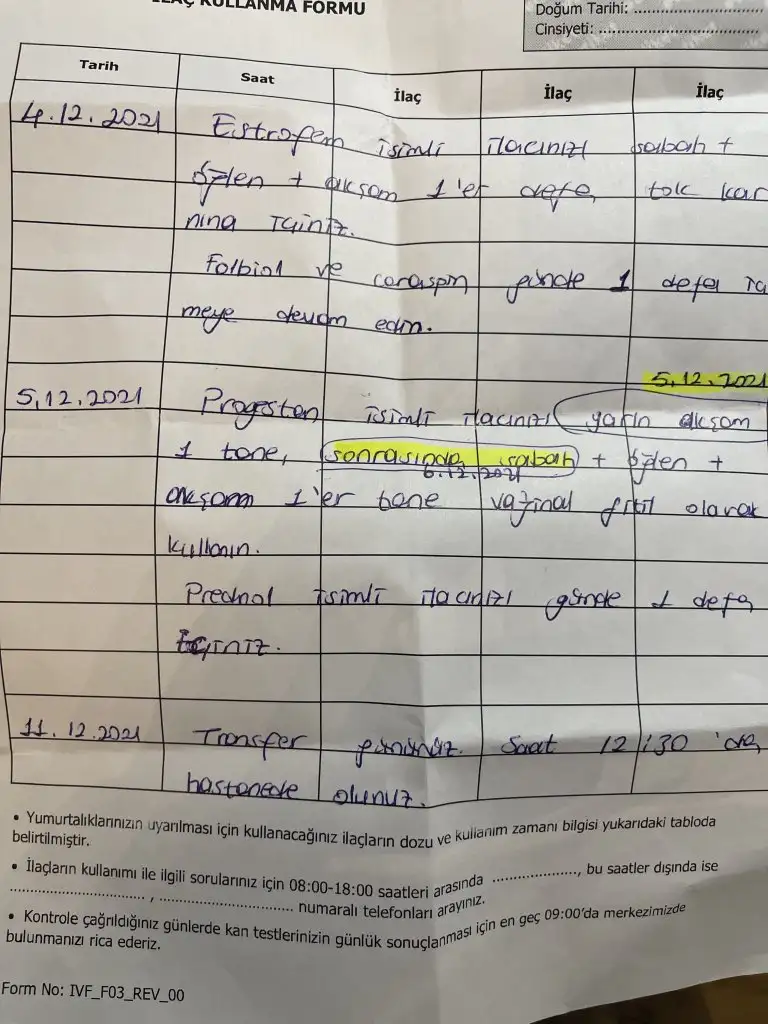 İLAÇ KULLANMA FORMU
Doğum Tarihi: ..............................
Cinsiyeti: ......................................
Tarih Saat İlaç İlaç İlaç
4.12.2021 Estrofem isimli ilacınızı sabah +
öğlen + akşam 1'er defa tok kar
nına içiniz.
Folbiol ve coraspin günde 1 defa iç
meye devam edin.
5.12.2021
5.12.2021 Progestan isimli ilacınızı yarın akşam
1 tane, sonrasında sabah + öğlen +
6.12.2021
akşam 1'er tane vajinal fitil olarak
kullanın.
Prednol isimli ilacınızı günde 1 defa
içiniz.
11.12.2021 Transfer gününüz. Saat 12:30 'da
hastanede olunuz.
• Yumurtalıklarınızın uyarılması için kullanacağınız ilaçların dozu ve kullanım zamanı bilgisi yukarıdaki tabloda
belirtilmiştir.
• İlaçların kullanımı ile ilgili sorularınız için 08:00-18:00 saatleri arasında ...................., bu saatler dışında ise
................................ , ................................ numaralı telefonları arayınız.
• Kontrole çağrıldığınız günlerde kan testlerinizin günlük sonuçlanması için en geç 09:00'da merkezimizde
bulunmanızı rica ederiz.
Form No: IVF_F03_REV_00